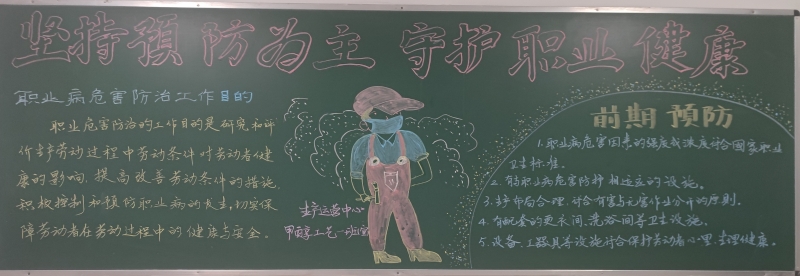 坚持预防为主 守护职业健康
职业病危害防治工作目的
职业危害防治的工作目的是研究和评
价生产劳动过程中劳动条件对劳动者健
康的影响，提高改善劳动条件的措施，
积极控制和预防职业病的发生，切实保
障劳动者在劳动过程中的健康与安全。
生产运营中心
甲醇工艺一班宣
前期预防
1.职业病危害因素的强度或浓度符合国家职业
卫生标准。
2.有与职业病危害防护相适应的设施。
3.生产布局合理，符合有害与无害作业分开的原则。
4.有配套的更衣间、洗浴间等卫生设施。
5.设备、工器具等设施符合保护劳动者心里、生理健康。